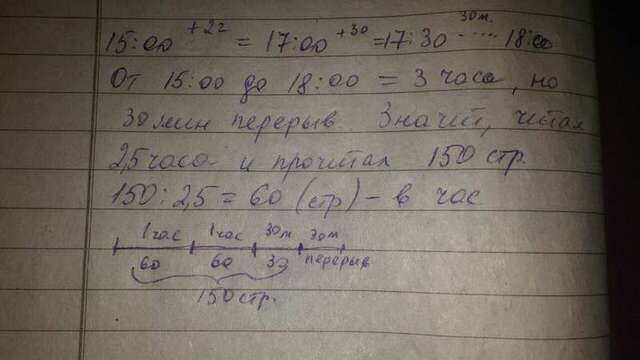 15:00 +2ч = 17:00 +30 = 17:30 30м. ..... 18:00
От 15:00 до 18:00 = 3 часа, но
30 мин перерыв. Значит, читал
2,5 часа и прочитал 150 стр.
150 : 2,5 = 60 (стр) - в час
1 час 1 час 30м 30м
60 60 30 перерыв
150 стр.